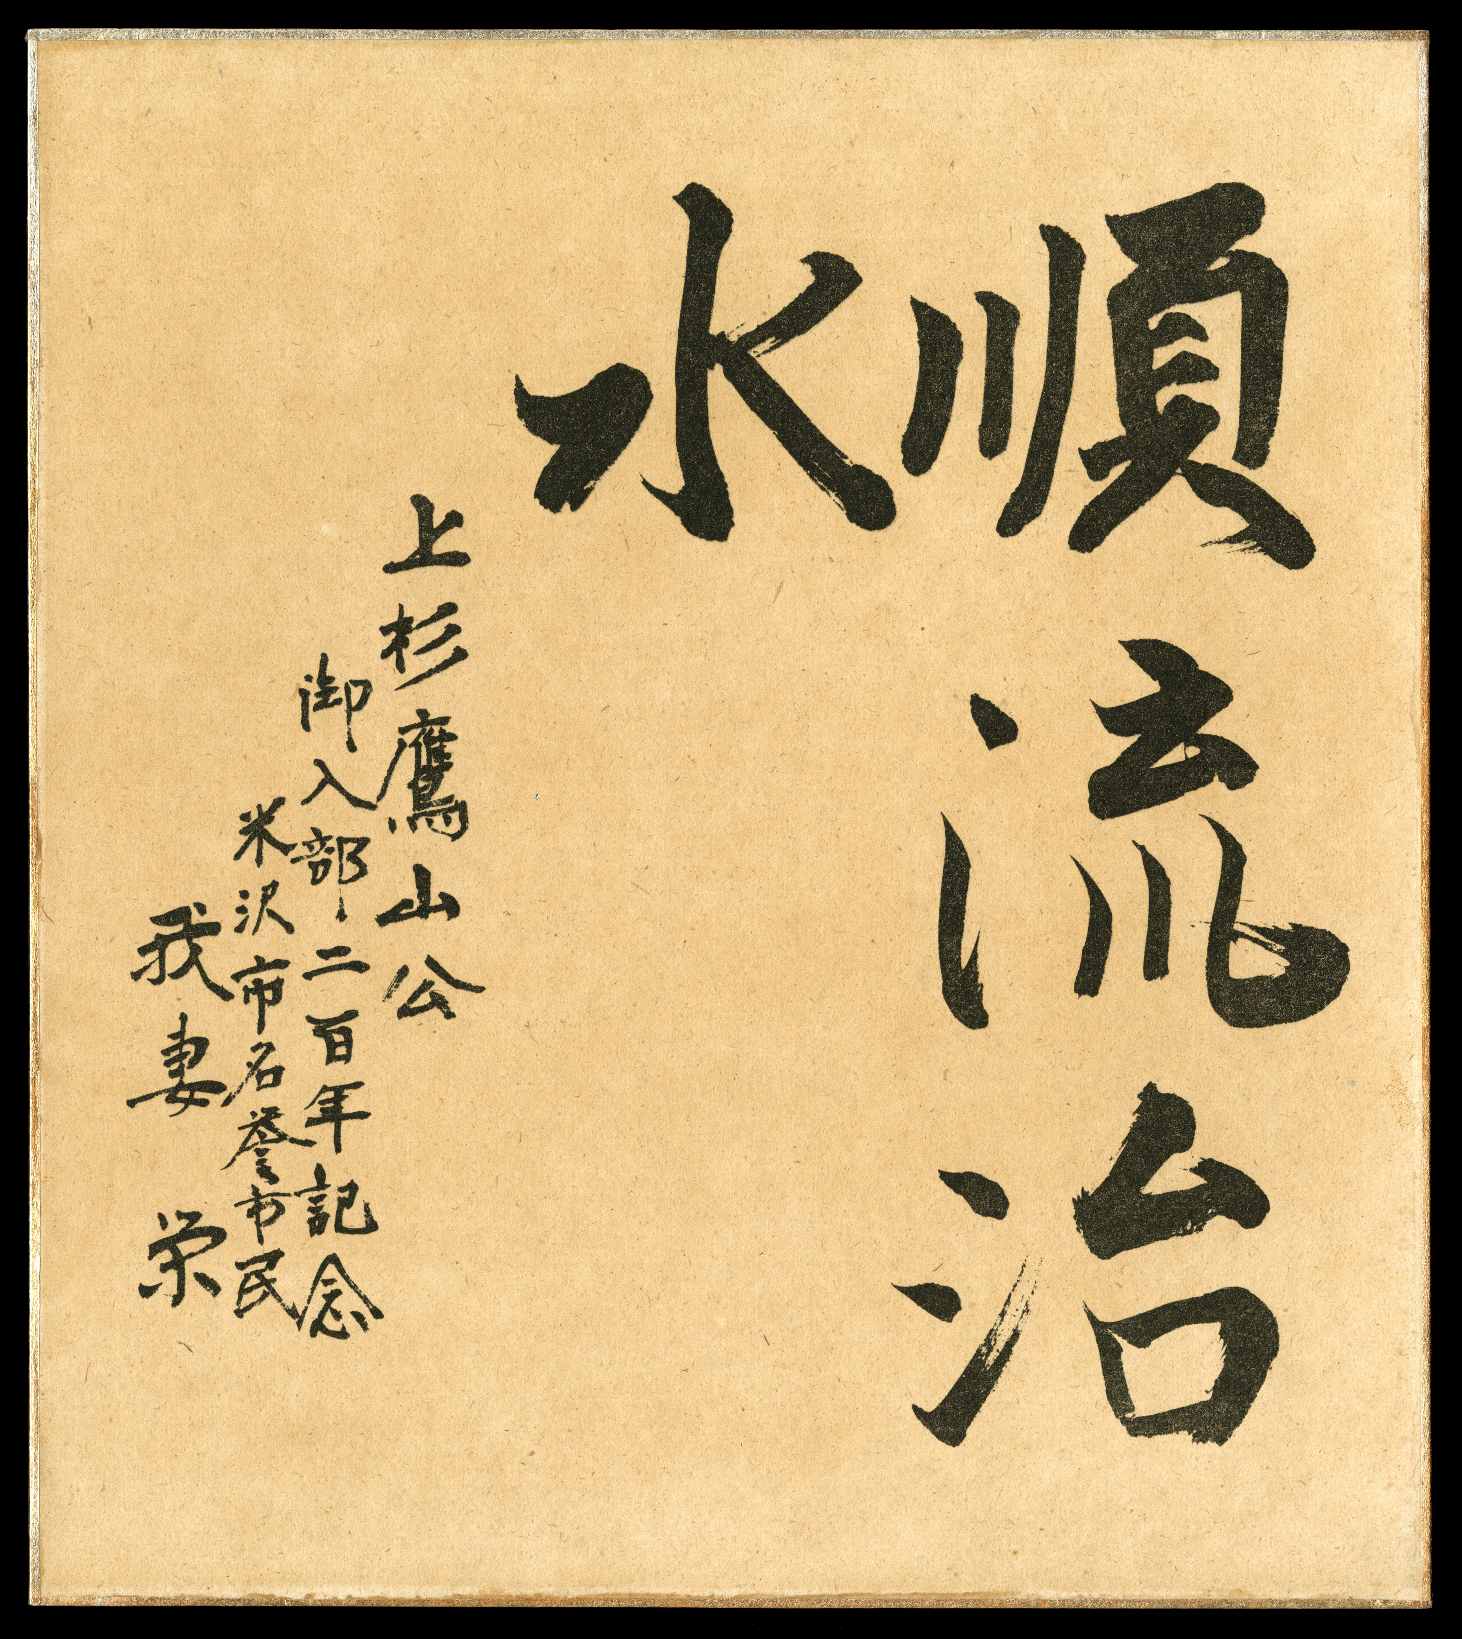 順流治
水
上杉鷹山公
御入部二百年記念
米沢市名誉市民
我妻栄